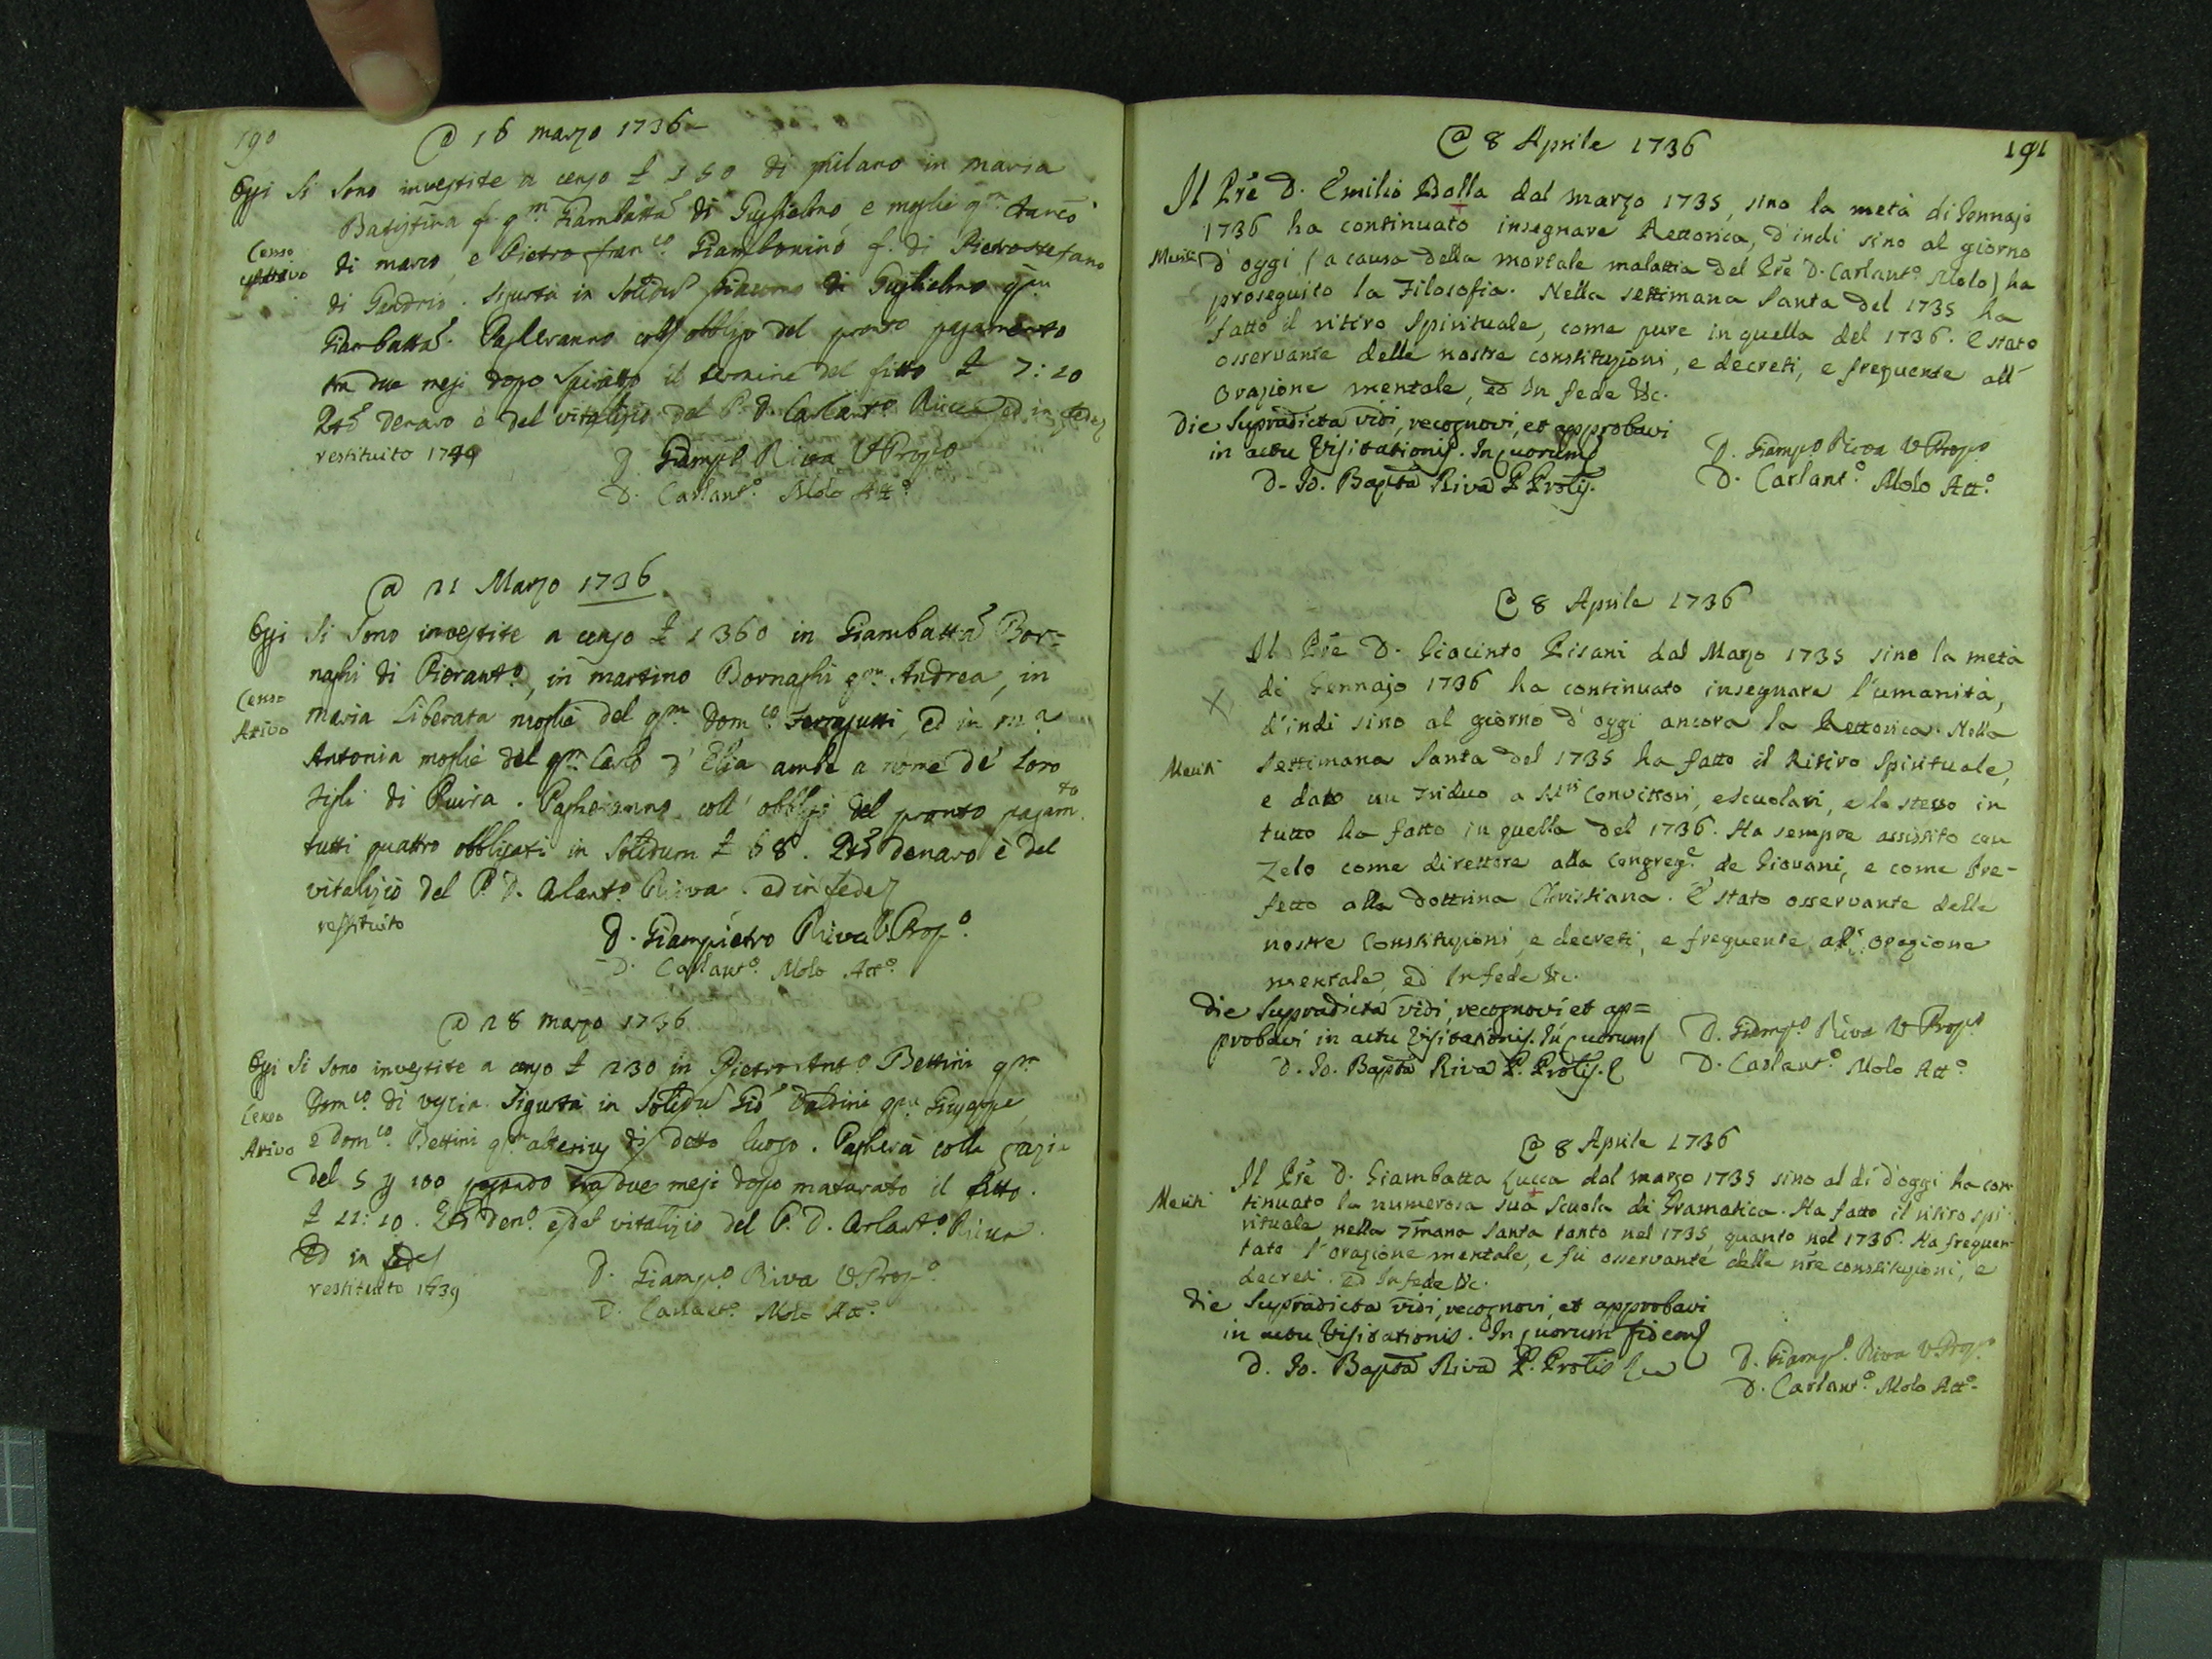 190
@ 16 marzo 1736
Oggi si sono investite a censo £ 150 di milano in maria
Batistina f. qm Giambatta di Guglielmo e moglie qm Marco
Censo
Attivo
di marco, e Pietro Franco Giambonino f. di Pietrostefano
di Gendrio. Sigurtà in solidu Giacomo di Guglielmo qm
Giambatta. Pagheranno coll'obbligo del pronto pagamento
tra due mesi dopo spirato il termine del fitto £ 7:10
Qto denaro è del vitalizio del P. D. Carlanto Riva ed in fede
restituito 1749
D. Giampo Riva VPropo
D. Carlanto Molo Atto
@ 21 Marzo 1736
Oggi si sono investite a censo £ 1360 in Giambatta Bor=
naghi di Pieranto, in martino Bornaghi qm Andrea, in
Censo
Ativo
maria Liberata moglie del qm Domco Ferrajutti, ed in ma
Antonia moglie del qm Carlo d'Elia ambe a nome de' loro
figli di Puira. Pagheranno coll'obbligo del pronto pagamto
tutti quattro obbligati in solidum £ 68. Qto denaro è del
vitalizio del P. D. Carlanto Riva. ed in fede
restituito
D. Giampietro Riva V.Propo
D. Carlanto Molo Atto
@ 28 marzo 1736
Oggi si sono investite a censo £ 230 in Pietro Anto Bettini qm
Censo
Ativo
Domco di Sigurtà in solidu Gio Daldini qm Giuseppe
e Domco Bettini qm alterius di detto luogo. Pagherà colla grazia
del 5 p 100 pagando tra due mesi dopo maturato il fitto
£ 11:10. Qto deno è del vitalizio del P. D. Carlanto Riva
Ed in fede
restituito 1739
D. Giampo Riva VPropo
D. Carlanto Molo Atto
191
@ 8 Aprile 1736
Il Pre D. Emilio Bolla dal marzo 1735, sino la metà di Gennajo
1736 ha continuato insegnare Rettorica, d'indi sino al giorno
Meriti
d'oggi (a causa della mortale malattia del Pre D. Carlanto Molo) ha
proseguito la Filosofia. Nella settimana Santa del 1735 ha
fatto il ritiro Spirituale, come pure in quella del 1736. È stato
osservante delle nostre constituzioni, e decreti, e frequente all'
Orazione mentale, ed In fede &c.
Die Supradicta vidi, recognovi, et approbavi
in actu Visitationis. In quorum
D. Jo. Bapta Riva P. Protis.
D. Giampo Riva VPropo
D. Carlanto Molo Atto
@ 8 Aprile 1736
Il Pre D. Giacinto Pisani dal Marzo 1735 sino la metà
X
di Gennajo 1736 ha continuato insegnare l'umanità,
d'indi sino al giorno d'oggi ancora la Rettorica. Nella
Meriti
Settimana Santa del 1735 ha fatto il Ritiro Spirituale,
e dato un triduo a Sigri Convittori, e scuolari, e lo stesso in
tutto ha fatto in quella del 1736. Ha sempre assistito con
zelo come direttore alla Congrege de Giovani, e come Pre-
fetto alla Dottrina Christiana. È stato osservante delle
nostre Constituzioni, e decreti, e frequente all' orazione
mentale, ed In fede &c.
Die Supradicta vidi, recognovi et ap=
probavi in actu Visitationis. In quorum
D. Jo. Bapta Riva P. Protis.
D. Giampo Riva VPropo
D. Carlanto Molo Atto
@ 8 Aprile 1736
Meriti
Il Pre D. Giambatta Lucca dal marzo 1735 sino al dì d'oggi ha con-
tinuato la numerosa sua Scuola di Gramatica. Ha fatto il ritiro spi-
rituale nella 7mana Santa tanto nel 1735 quanto nel 1736. Ha frequen-
tato l'orazione mentale, e fù osservante delle nre constituzioni, e
decreti. ed In fede &c.
Die Supradicta vidi, recognovi, et approbavi
in actu Visitationis. In quorum fidem
D. Jo. Bapta Riva P. Protis
D. Giampo Riva VPropo
D. Carlanto Molo Atto